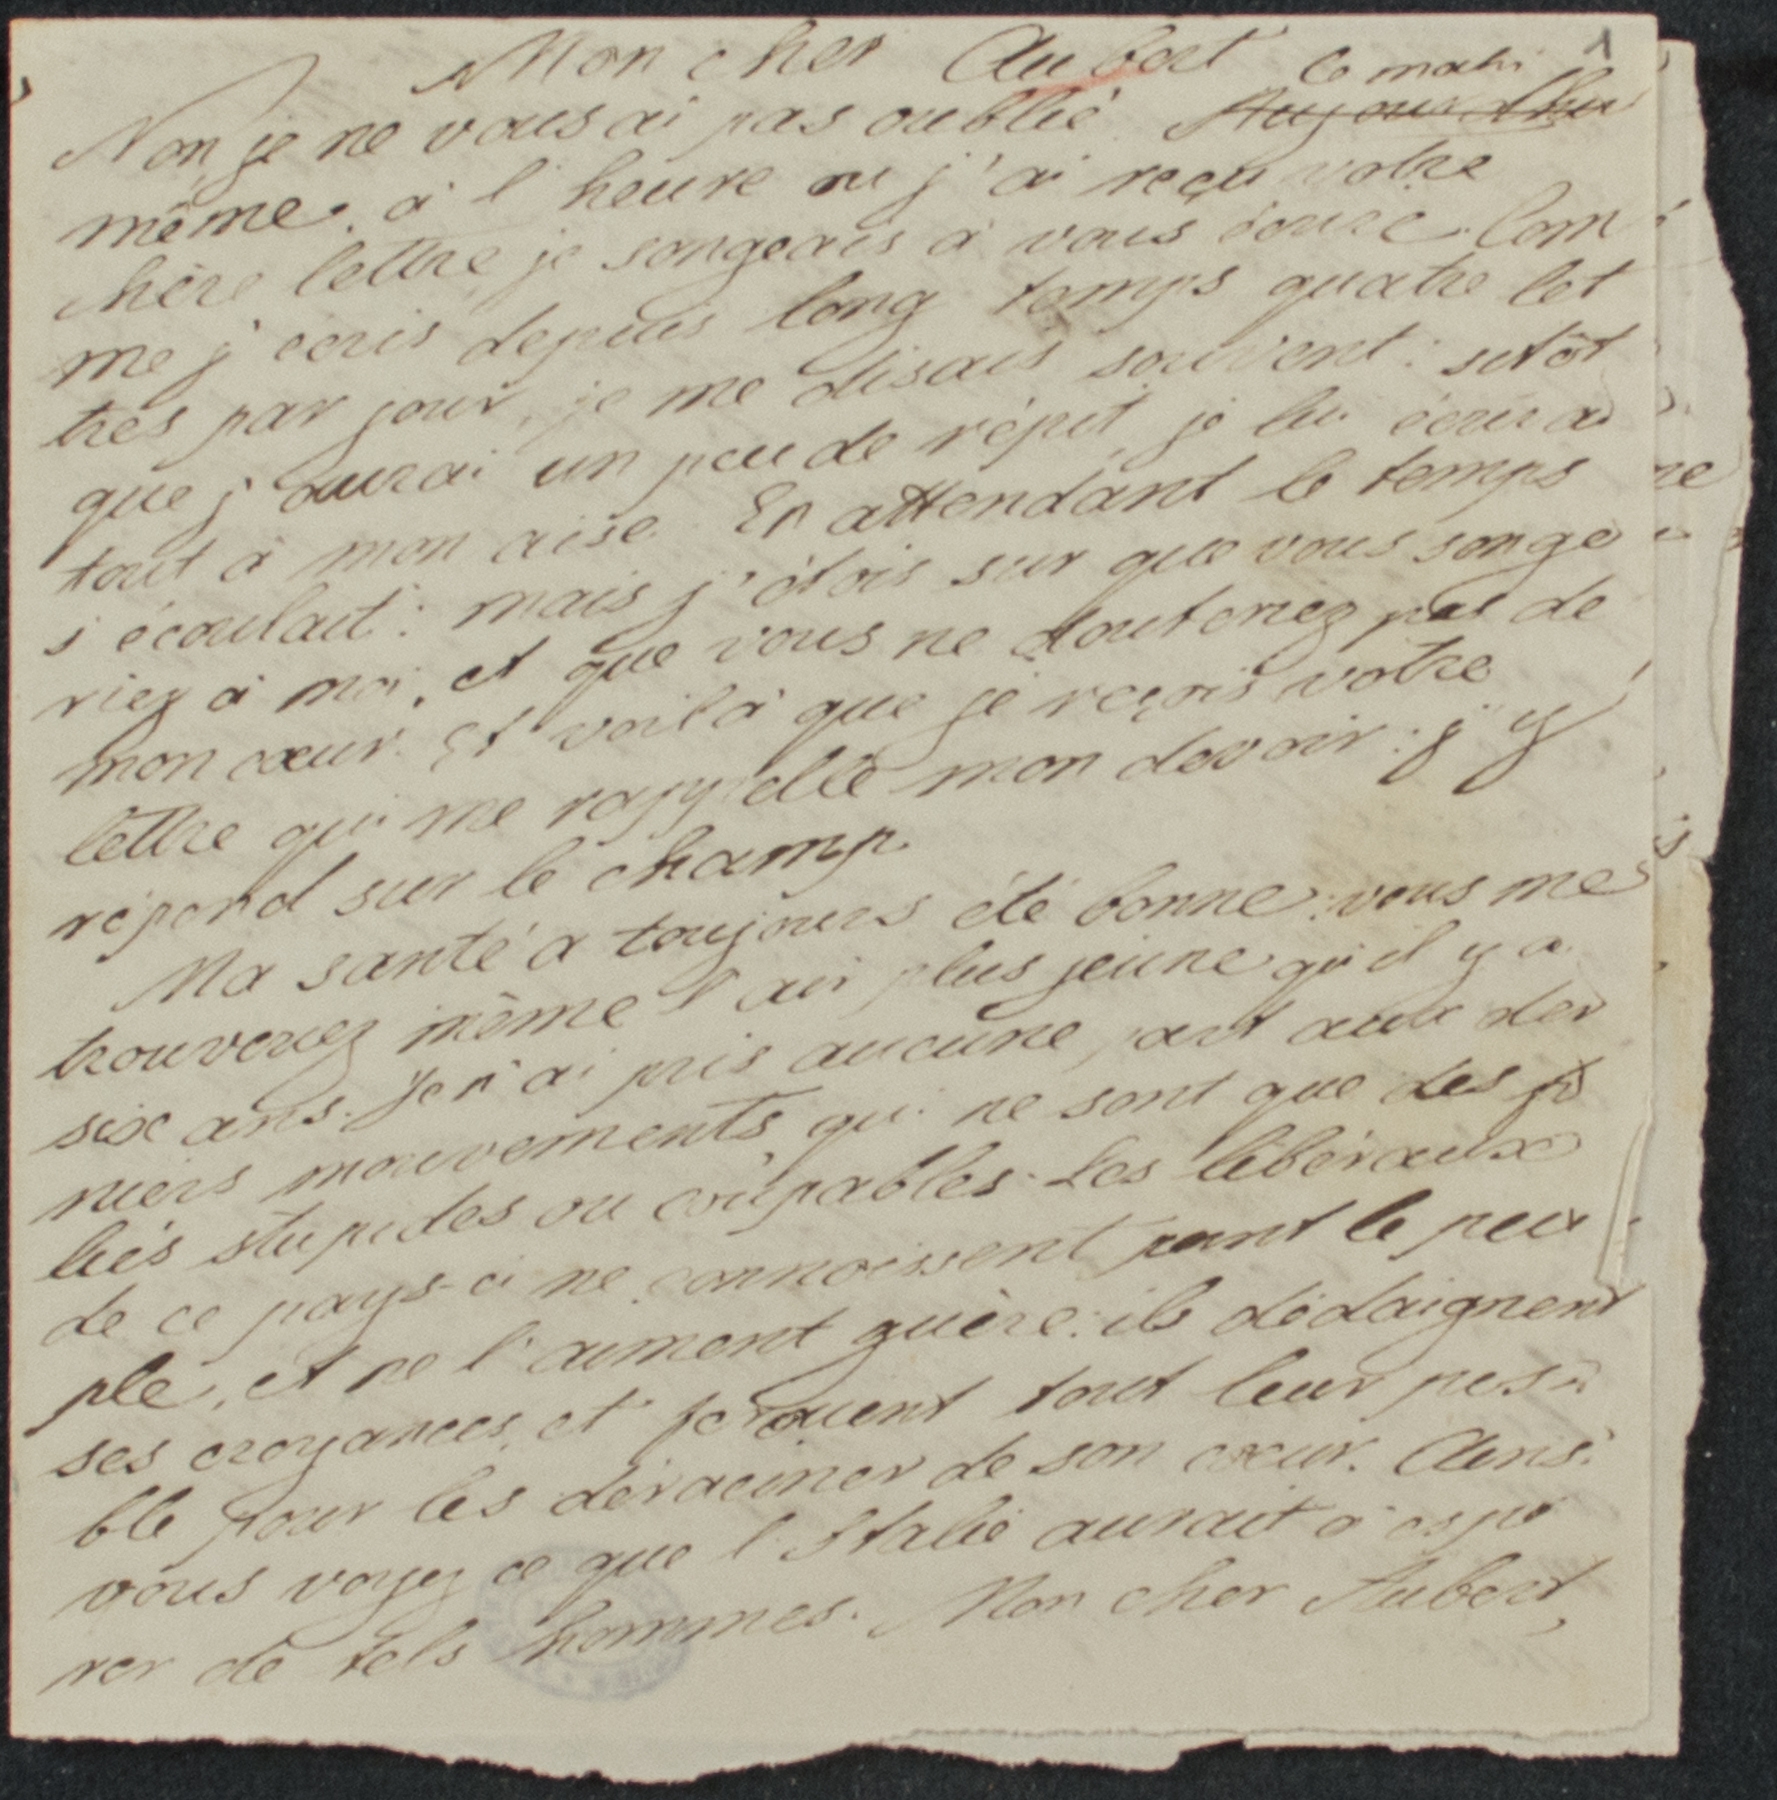 1
Mon cher Aubert
Ce matin
Non, je ne vous ai pas oublié Aujourd'hui
même, à l'heure ou j'ai reçu votre
chère lettre, je songeais à vous écrire. Com
me j'écris depuis long temps quatre let
tres par jour, je me disais souvent: sitôt
que j'aurai un peu de répit, je lui écrirai
tout à mon aise. En attendant le temps
s'écoulait: mais j'étois sur que vous songe
riez à moi, et que vous ne douteriez pas de
mon cœur. Et voilà que je reçois votre
lettre qui me rappelle mon devoir: j'y
répond sur le champ.
Ma santé a toujours été bonne: vous me
trouveriez même l'air plus jeune qu'il y a
six ans. Je n'ai pris aucune part aux der
niers mouvements, qui ne sont que des fo
lies stupides ou coupables. Les libéraux
de ce pays-ci ne connoissent point le peu
ple, et ne l'aiment guère: ils dédaignent
ses croyances, et font tout leur possi
ble pour les déraciner de son cœur. Ainsi
vous voyez ce que l'Italie aurait à espé
rer de tels hommes. Mon cher Aubert,